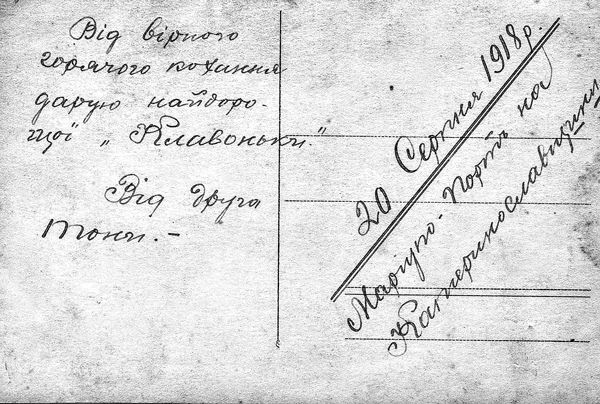 Від вірного
горячого кохання
дарую найдоро-
щої „Клавоньки."
Від друга
Тоні.-
20 Серпня 1918 р.
Маріупо-Портъ на
Катеринославщини